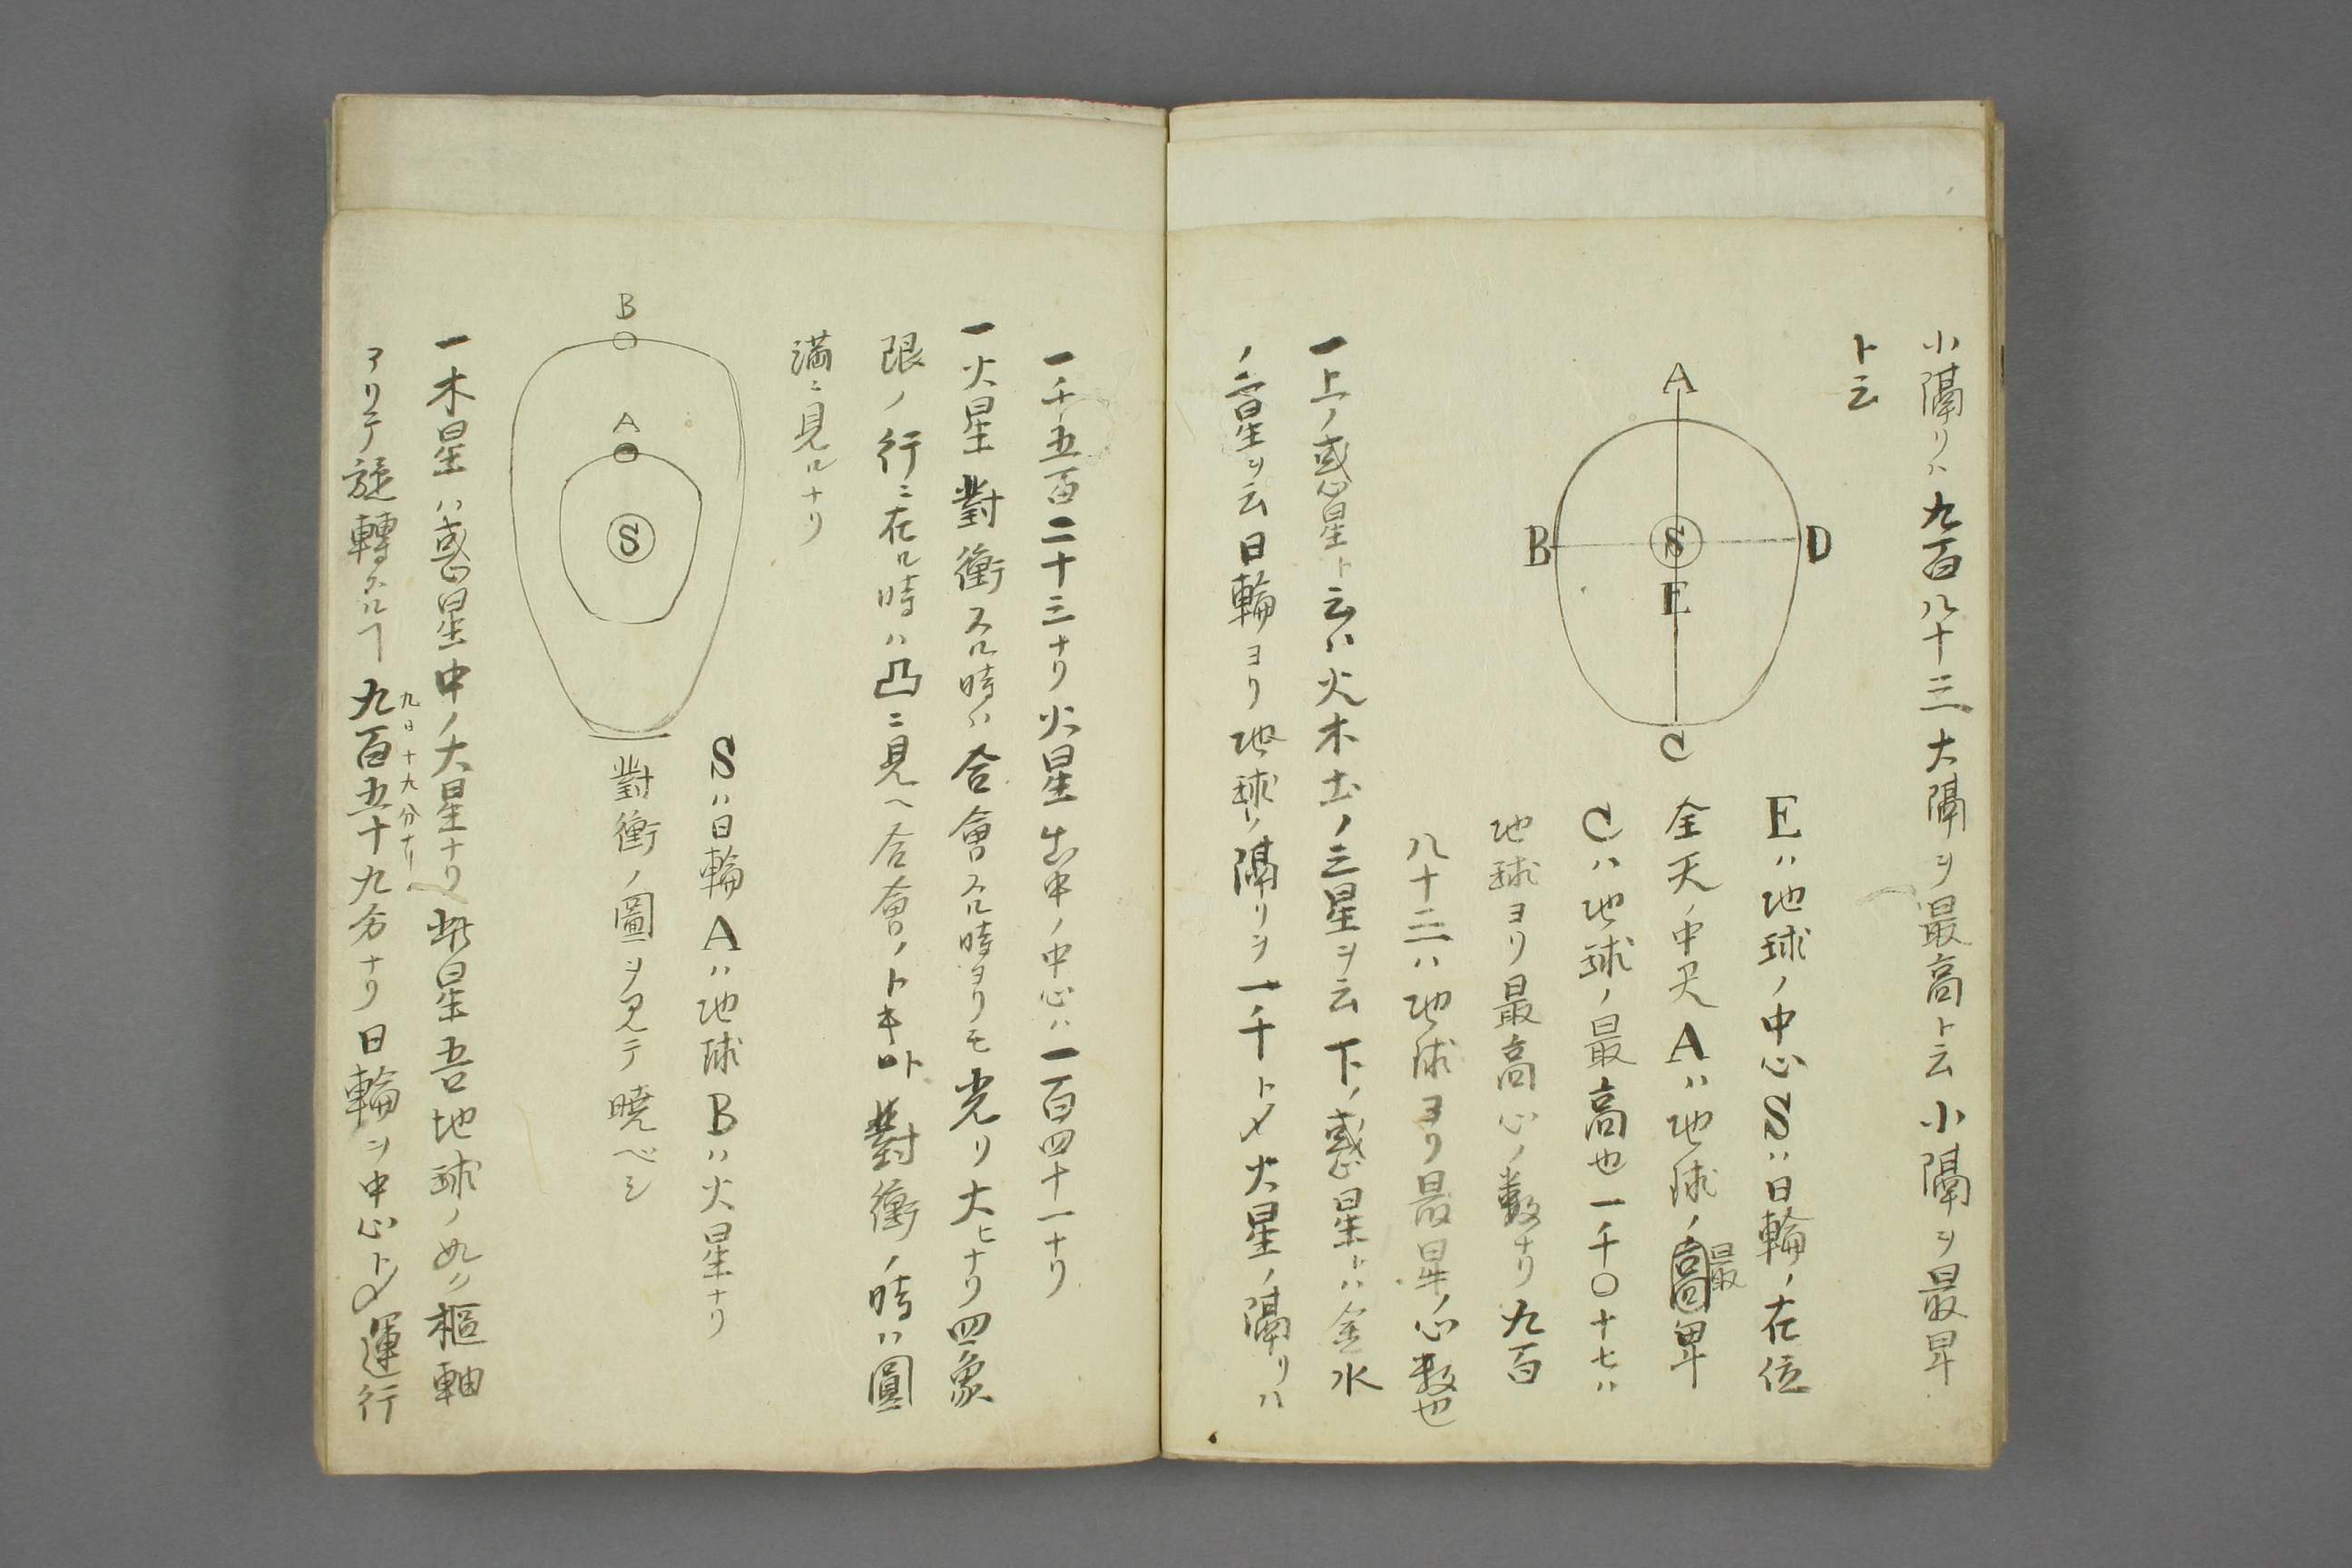 小隔リハ九百八十三大隔ヲ最高ト云小隔ヲ最卑
ト云
A
B
S
D
E
C
Eハ地球ノ中心Sハ日輪ノ在位
全天ノ中天Aハ地球ノ高最卑
Cハ地球ノ最高也一千〇十七ハ
地球ヨリ最高心ノ数ナリ九百
八十三ハ地球ヨリ最卑ノ心数也
一上ノ惑星ト云ハ火木土ノ三星ヲ云下ノ惑星トハ金水
ノ二星ヲ云日輪ヨリ地球ノ隔リヲ一千トメ火星ノ隔リハ
一千五百二十三ナリ火星出中ノ中心ハ一百四十一ナリ
一火星對衝スル時ハ合會スル時ヨリモ光リ大ヒナリ四象
限ノ行ニ在ル時ハ凸ニ見ヘ合會ノトキ叶對衝ノ時ハ圓
満ニ見ルナリ
B
A
S
Sハ日輪Aハ地球Bハ火星ナリ
對衝ノ圖ヲ見テ曉ベシ
一木星ハ惑星中ノ大星ナリ此星吾地球ノ如ク樞軸
九日十九分ナリ
アリテ旋轉スルヿ九百五十九分ナリ日輪ヲ中心トメ運行